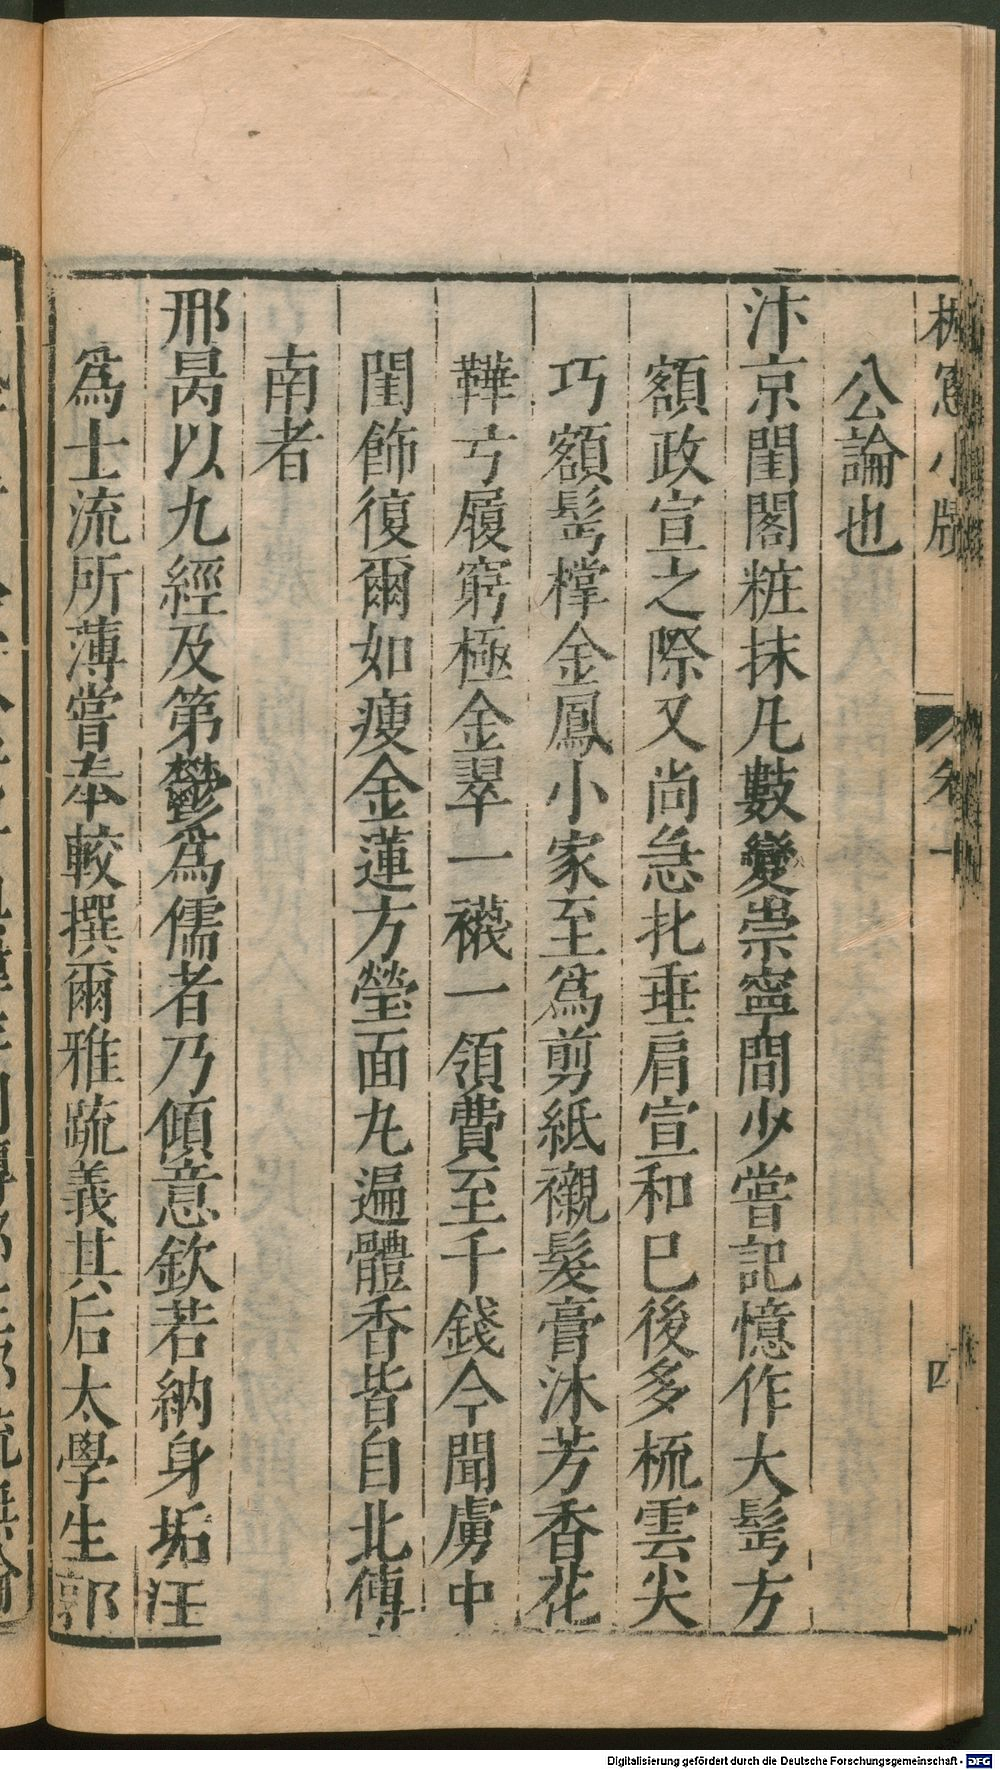 楓窻小牘 卷上 四
公論也
汴京閨閣粧抹凡數變崇寧間少嘗記憶作大髩方
額政宣之際又尚急扎垂肩宣和已後多梳雲尖
巧額髩撑金鳳小家至為剪紙襯髮膏沐芳香花
鞾弓履窮極金翠一襪一領費至千錢今聞虜中
閨飾復爾如瘦金蓮方瑩面丸遍體香皆自北傳
南者
邢昺以九經及第鬱為儒者乃傾意欽若納身垢汪
為士流所薄嘗奉較撰爾雅疏義其后太學生郭
Digitalisierung gefördert durch die Deutsche Forschungsgemeinschaft - DFG